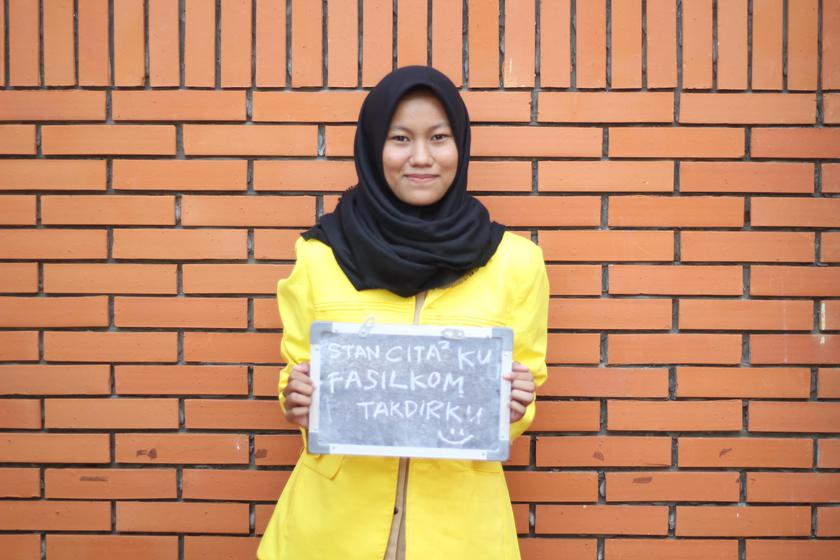 STAN CITA² KU
FASILKOM
TAKDIRKU